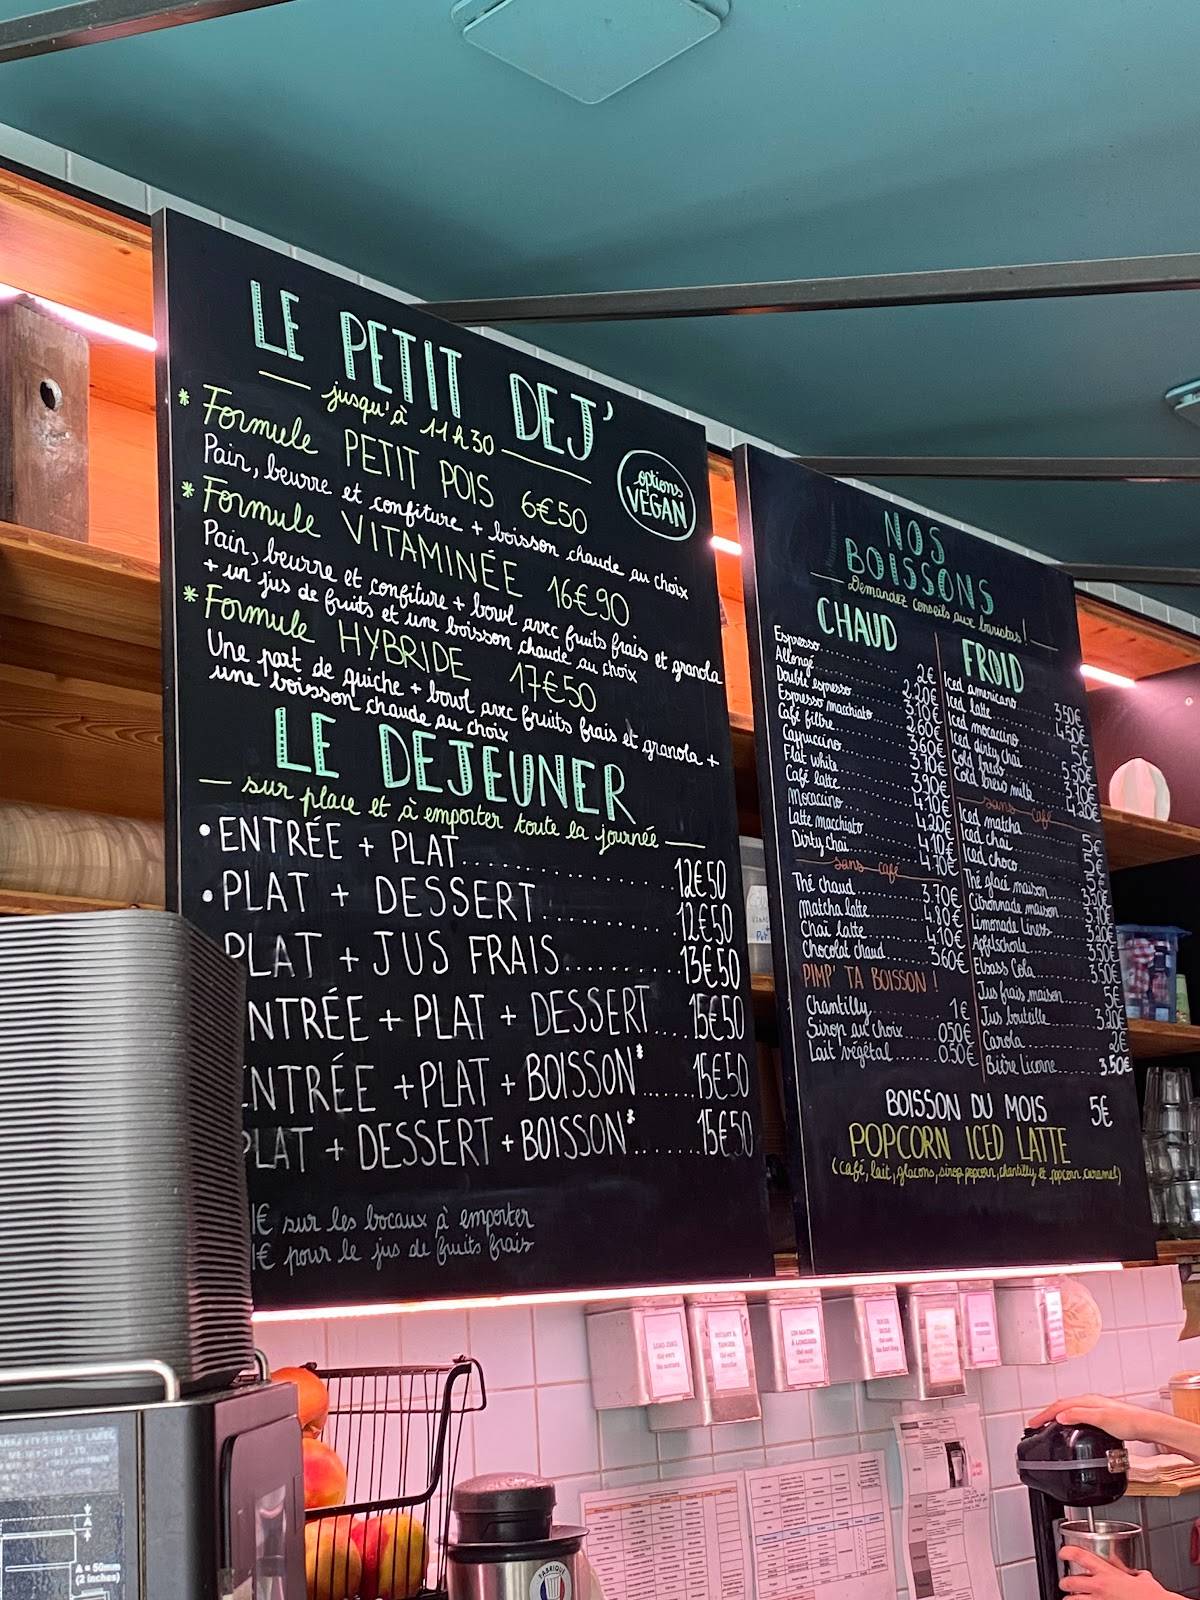 LE PETIT DEJ'
jusqu'à 11h30
options
VEGAN
* Formule PETIT POIS 6€50
Pain, beurre et confiture + boisson chaude au choix
* Formule VITAMINÉE 16€90
Pain, beurre et confiture + bowl avec fruits frais et granola
+ un jus de fruits et une boisson chaude au choix
* Formule HYBRIDE 17€50
Une part de quiche + bowl avec fruits frais et granola +
une boisson chaude au choix
LE DEJEUNER
sur place et à emporter toute la journée
• ENTRÉE + PLAT 12€50
• PLAT + DESSERT 12€50
PLAT + JUS FRAIS 13€50
NTRÉE + PLAT + DESSERT 15€50
ENTRÉE + PLAT + BOISSON* 15€50
PLAT + DESSERT + BOISSON* 15€50
1€ sur les bocaux à emporter
1€ pour le jus de fruits frais
NOS
BOISSONS
Demandez conseils aux baristas!
CHAUD
Espresso 2€
Allongé 2.20€
Double espresso 3.10€
Espresso macchiato 2.60€
Café filtre 3.60€
Cappuccino 3.70€
Flat white 3.90€
Café latte 4.10€
Mocaccino 4.20€
Latte macchiato 4.10€
Dirty chai 4.70€
sans café
Thé chaud 3.70€
Matcha latte 4.80€
Chaï latte 4.10€
Chocolat chaud 3.60€
PIMP' TA BOISSON !
Chantilly 1€
Sirop au choix 0.50€
Lait végétal 0.50€
FROID
Iced americano 3.50€
Iced latte 4.50€
Iced mocaccino 5€
Iced dirty chai 5.50€
Cold brew
Cold brew milk 4.20€
sans café
Iced matcha 5€
Iced chai 5€
Iced choco 5€
Thé glacé maison
Citronnade maison
Limonade Liness
Apfelschorle 3.50€
Elsass Cola 3.50€
Jus frais maison 5€
Jus bouteille 3.20€
Carola 2€
Bière Licorne 3.50€
BOISSON DU MOIS 5€
POPCORN ICED LATTE
(café, lait, glaçons, sirop popcorn, chantilly et popcorn caramel)
A = 50mm
(2 inches)
FABRIQUÉ